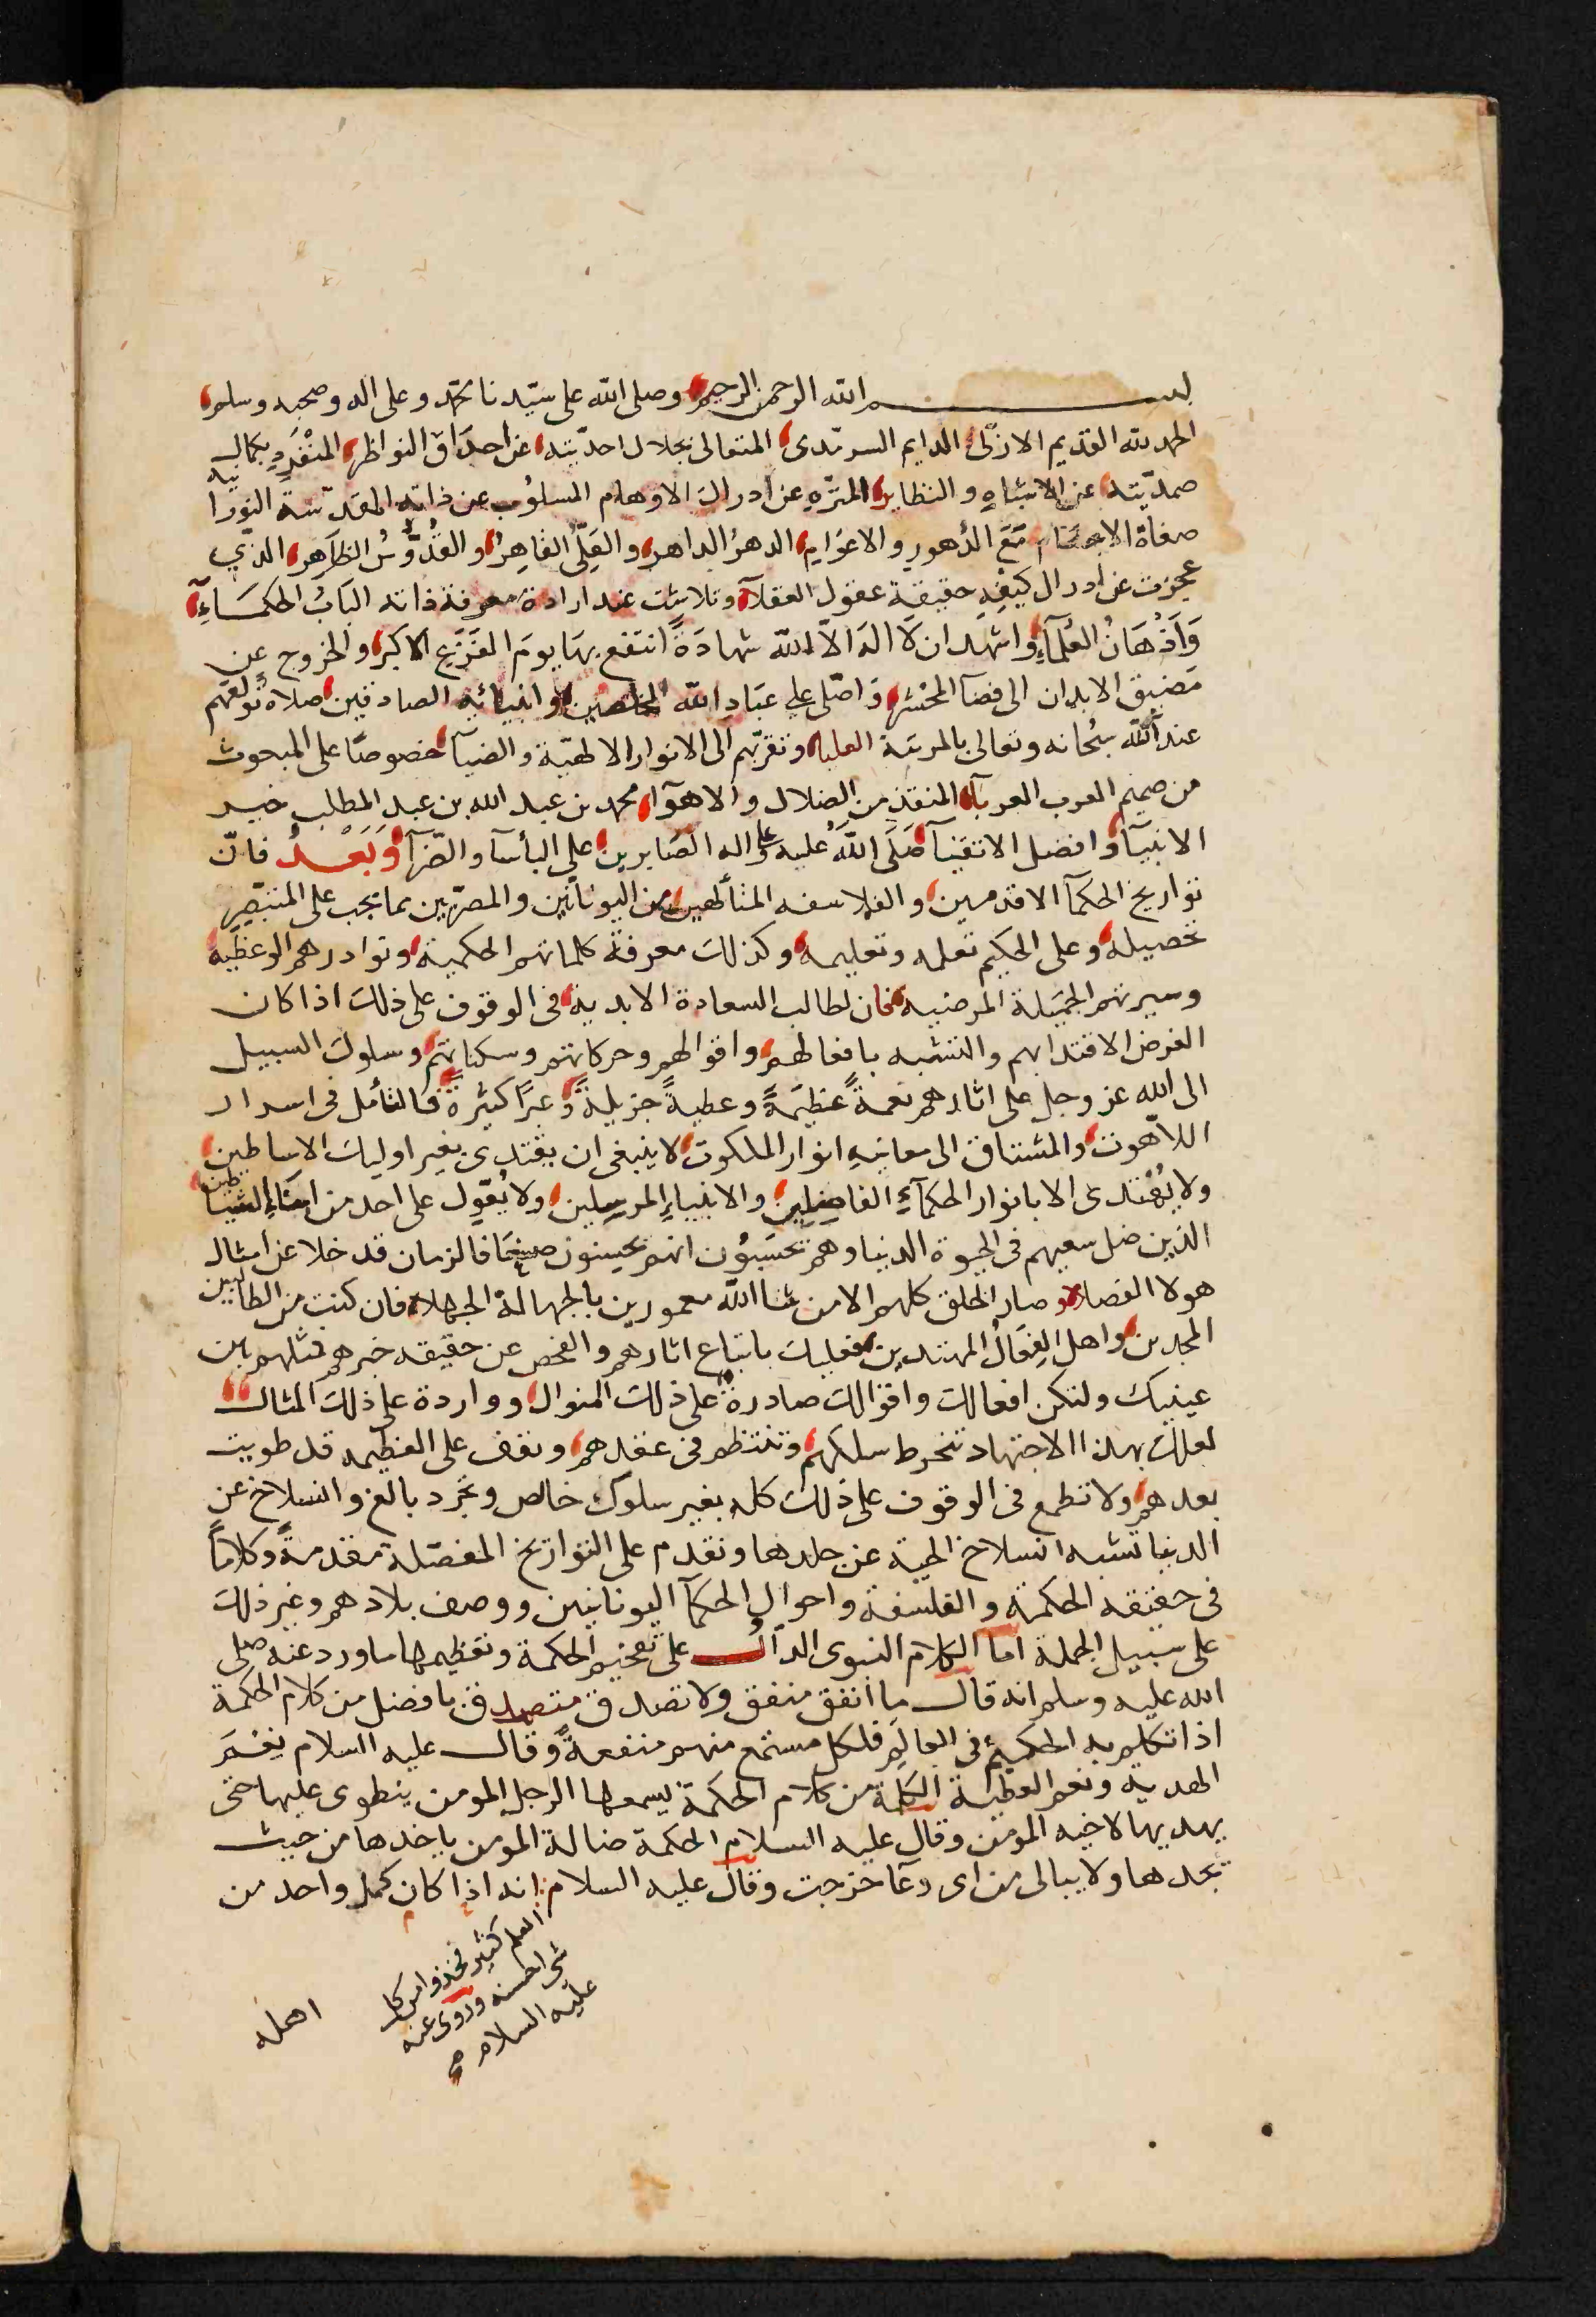 بسم الله الرحمن الرحيم وصلى الله على سيّدنا محمّد وعلى اله وصحبه وسلم
الحمد لله القديم الازلىّ الدايم السرمدى المتعالى بجلال احدّيته عن احداق النواظر المنْفَردِ بكمال
صمديّته عن الاشباهِ والنظاير المنزّهِ عن ادراك الاوهام المسلوُب عن ذاته المقدّسَة النوّرانيه
صفاة الاجسَام مَعَ الدُهورِ والاعوَامِ الدهرُ الداهر والعَلِىّ القاهِرُ والقُدّوسُ الظاهر الذي
عجزت عن ادراك كيفيهِ حقيقة عقول العقلآء وتلاشت عند ارادة معرفة ذاته البَابُ الحكمَآءِ
وَاَذْهَانُ العُلمآءِ واشهد ان لَا اله الاّ الله شهادَةً انتفع بهَا يومَ الفَزَعِ الاكبر والخروج عن
مَضيق الابدان الى فضآ المحْشر وَاصّلى علي عبَادِ الله المخلصين وانبيائِه الصادقين صلاة تولعهم
عند الله سُبحانه وتعالى بالمرتبة العليا وتقربّهم الى الانوار الالهيّة والضيآ خصوصًا على المبعوث
من صميم العرب العربآ المنقذ من الضلال والاهوآء محمد بن عبد الله بن عبد المطلب خير
الانبيآ وافضل الاتقيآ صَلَى اللّهُ عليه وعلى اله الصَابرين علي البأسآ والضّرآ وَبَعْدُ فانّ
تواريخ الحكمآ الاقدمين والفلاسفه المتألهين من اليونانّين والمصرّيين مما يجب على المتبصّر
تحصيله وعلى الحكيم تعلمه وتعليمه وكذلك معرفة كلماتهم الحكمية ونوادرهم الوعظية
وسيرتهم الجميَلة المرضيه فان لطالب السعادة الابدية فى الوقوف على ذلك اذا كان
الغرض الاقتدا بهم والتشبه بافعالهم واقوالهم وحركاتهم وسكناتهم وسلوك السبيل
الى الله عز وجل على اثارهم نعمةً عظيَمةً وعطيةً جزيلةً وعبرًا كثيرة فالتأمل فى اسرار
اللاّهوت والمشتاق الى معاينهِ انوار الملكوت لا ينبغى ان يقتدى بغير اوليك الاساطين
ولا يُهْتدى الا بانوار الحكمآءِ الفاضِلين والانبياءِ المرسلين ولا يُعوّل على احد من ابنَاءِ الشياطين
الذين ضل سعيهم فى الحيوة الدنيا وهُم يَحسَبوُن انهم يحسنون صنعًا فالزمان قد خلا عن امثال
هولا الفضلا وصار الخلق كلهم الا من شا الله معمورين بالجهالة الجهلا فان كنت من الطالبين
المجدين واهل الفِعَال المهتدين فعليك باتباع اثارهم والفحص عن حقيقه خبرهم فمثلهم بين
عينيك ولتكن افعالك واقوالك صادرة على ذلك المنوال وواردة على ذلك المثال
لعلك بهذا الاجتهاد تنخرط سلكهم وتنتظم فى عقدهم وتقف على العظيمه قد طويت
بعدهم ولا تطمع فى الوقوف على ذلك كله بغير سلوك خالص وتجرد بالغ وانسلاخ عن
الدنيا تشبه انسلاخ الحية عن جلدها ونقدم على التواريخ المفصّلة مقدمةً وكلامًا
فى حقيقه الحكمة والفلسفة واحوال الحكمآ اليونانيين ووصف بلادهم وغير ذلك
على سبيل الجملة اما الكلام النبوى الدآل على تفخيم الحكمة وتعظيمها ما ورد عنه صلى
الله عليه وسلم انه قال ما انفق منفق ولا تصدق متصدق بافضل من كلام الحكمة
اذا تكلم به الحكيم فى العالَم فلكل مستمع منهم منفعةً وقال عليه السلام نعْمَ
الهدية ونعم العطية الكلمة من كلام الحكمة يسمعها الرجل المومن ينطوى عليها حتى
يهديها لاخيه المومن وقال عليه السلام الحكمة ضالة المومن ياخدها من حيث
يجدها ولا يبالى من اى وعآ خرجت وقال عليه السلام انه اذا كان كل واحد من
العلم كثير فخذوا من كل
شى احسنه وروى عنه
عليه السلام
اهله